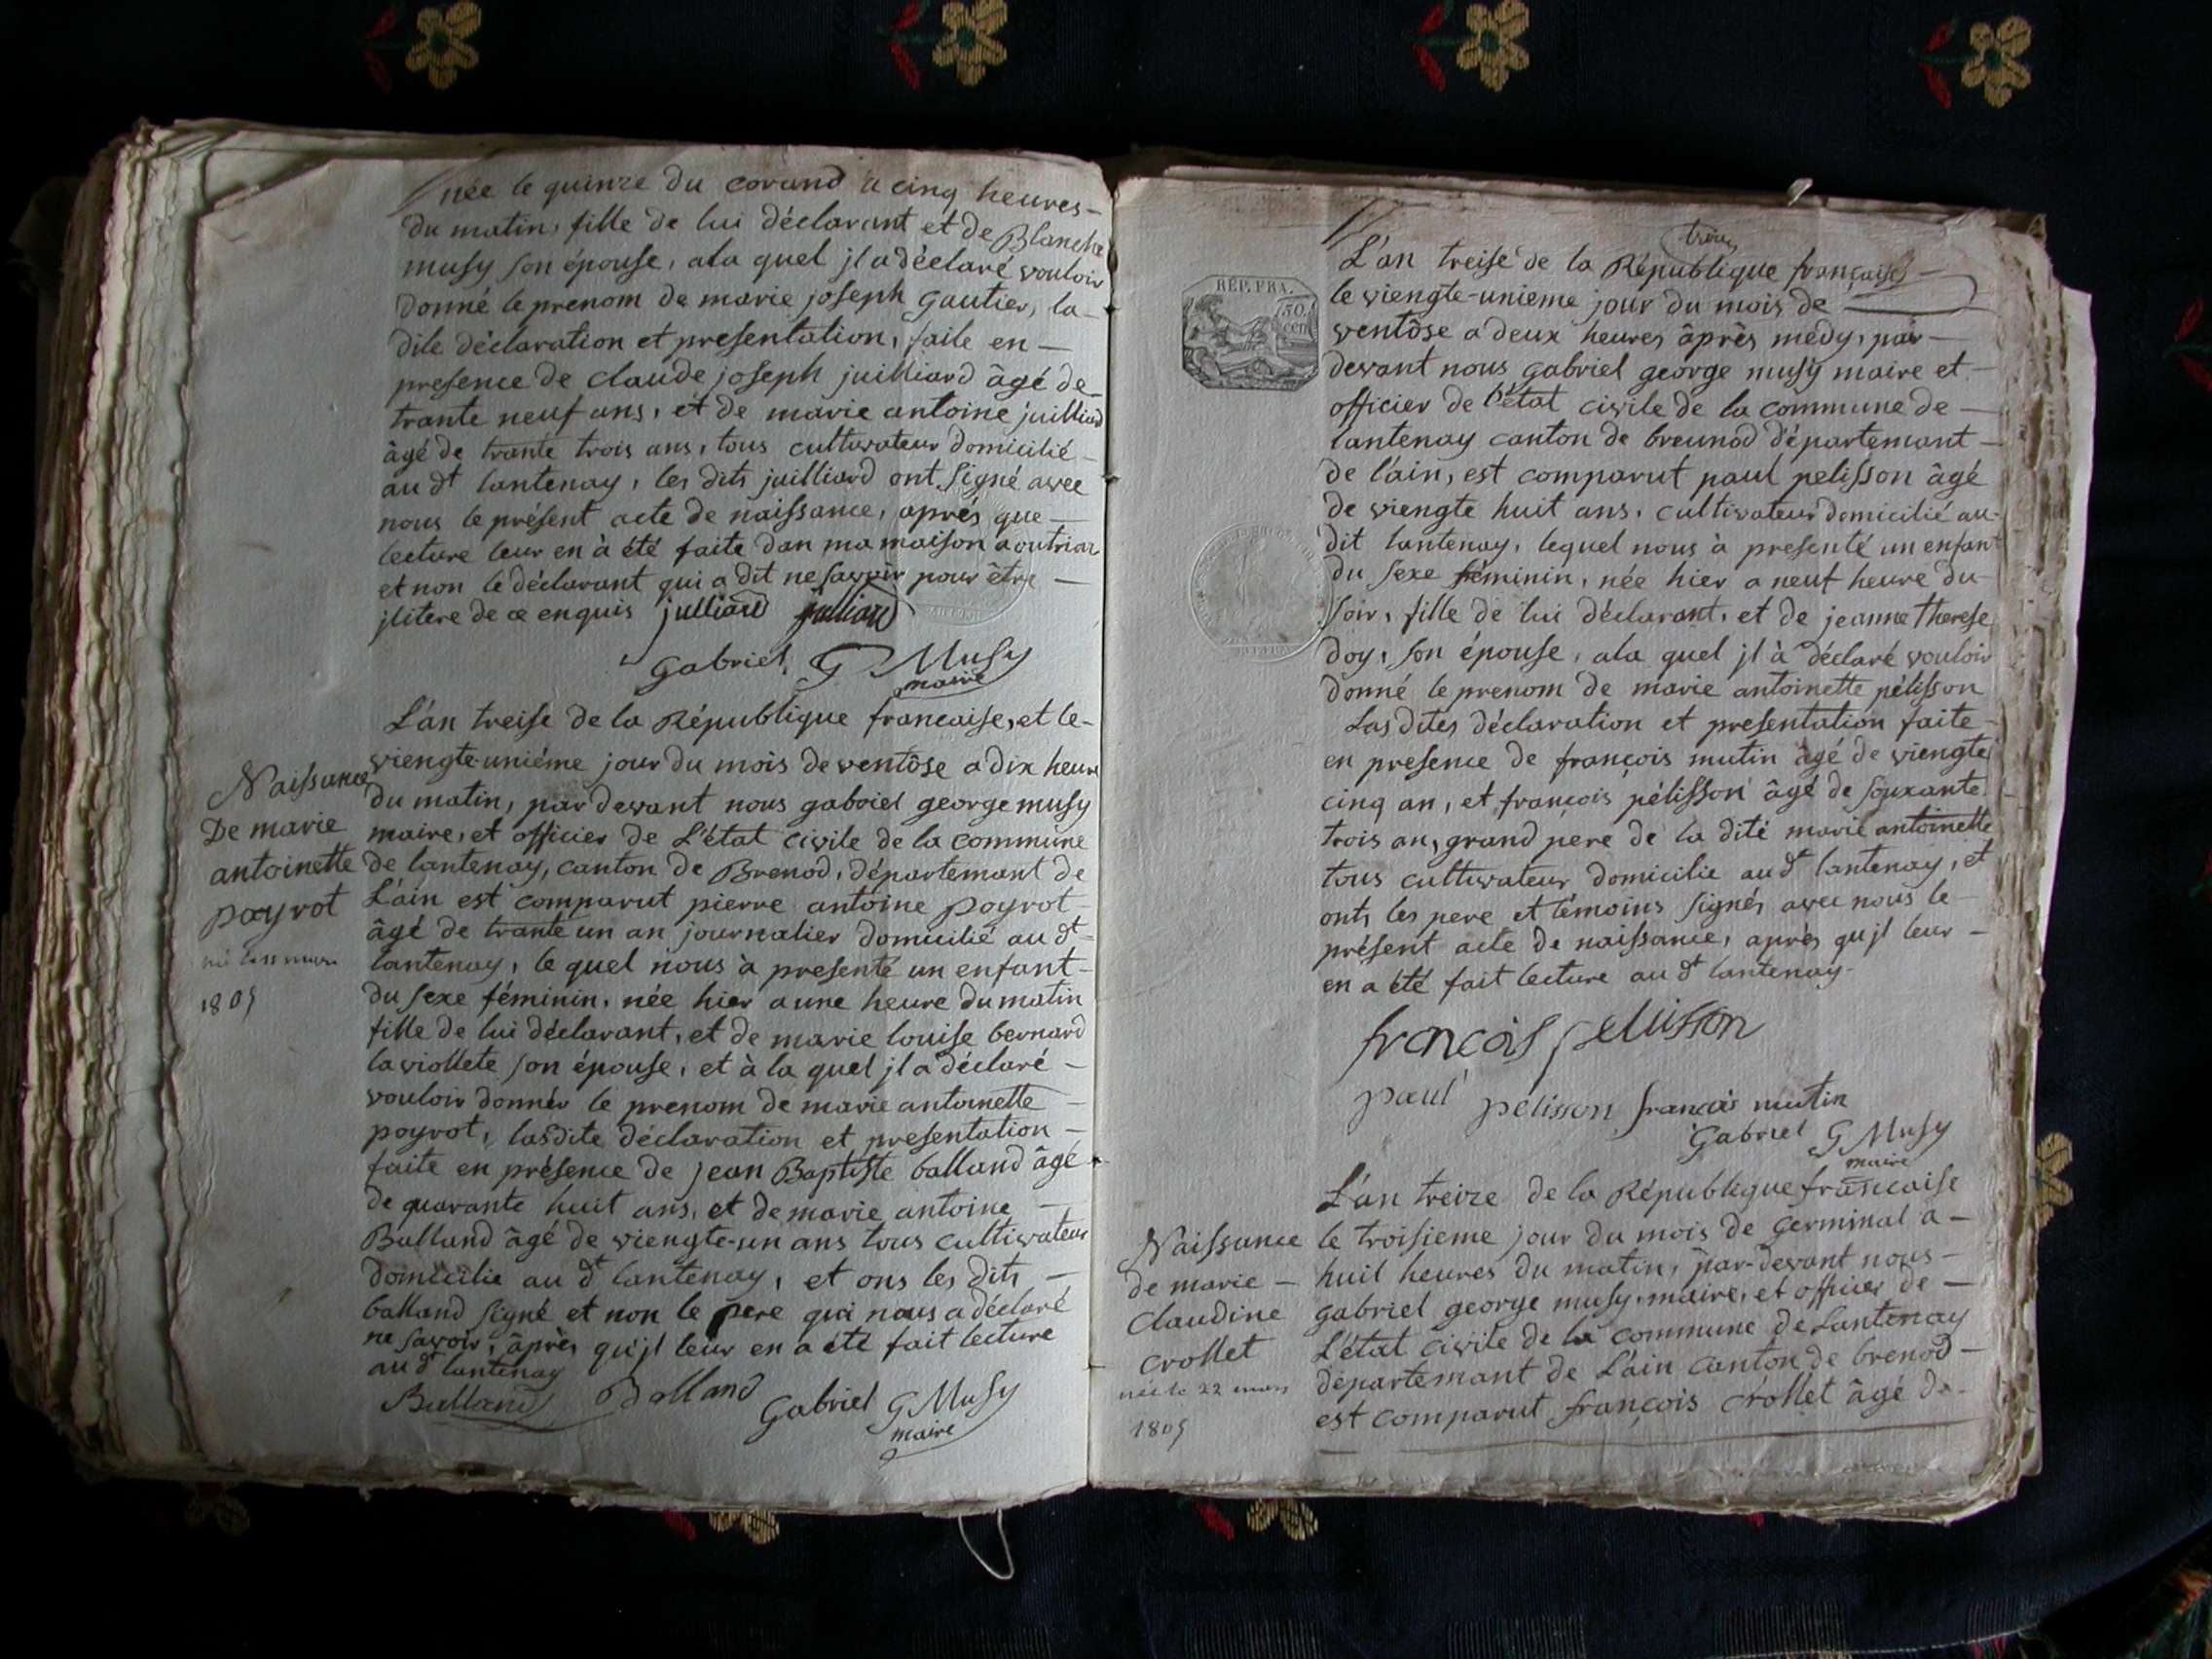 née le quinze du corand a cinq heures-
du matin, fille de lui déclarant et de Blanche
musy son épouse, ala quel jl a déclaré vouloir
donné le prenom de marie joseph gautier, la-
dite déclaration et presentation, faite en-
presence de claude joseph juilliard âgé de
trante neuf ans, et de marie antoine juilliard
âgé de trante trois ans, tous cultivateur domicilié-
au dt lantenay, les dits juilliard ont signé avec
nous le présent acte de naissance, aprés que-
lecture leur en à été faite dan ma maison a outriaz
et non le déclarant qui a dit ne savoir pour être-
jlitere de ce enquis julliard julliard
Gabriel G Musy
maire
L'an treise de la République francaise, et le-
viengte-uniéme jour du mois de ventôse a dix heure
du matin, par devant nous gabriel george musy
maire, et officier de L'état civile de la commune
de lantenay, canton de Brenod, départemant de
L'ain est comparut pierre antoine poyrot-
âgé de trante un an journalier domicilié au dt-
lantenay, le quel nous à presenté un enfant-
du sexe féminin, née hier a une heure du matin
fille de lui déclarant, et de marie louise bernard
laviollete son épouse, et à la quel jl a déclaré-
vouloir donnér le prenom de marie antoinette-
poyrot, lasdite déclaration et presentation-
faite en présence de jean Baptiste balland âgé
de quarante huit ans, et de marie antoine-
Balland âgé de viengte-un ans tous cultivateur
domicilie au dt lantenay, et ons les dits-
balland signé et non le pere qui nous a déclaré
ne savoir, âprès qu'jl leur en a été fait lecture
au dt lantenay
Balland Balland Gabriel G Musy
maire
Naissance
De marie
antoinette
poyrot
1805
L'an treise de la République française-
le viengte-unieme jour du mois de
ventôse a deux heures âprès médy, par-
devant nous gabriel george musy maire et-
officier de l'état civile de la commune de-
lantenay canton de breunod départemant-
de l'ain, est comparut paul pelisson âgé
de viengte huit ans, cultivateur domicilié au-
dit lantenay, lequel nous à presenté un enfant
du sexe féminin, née hier a neuf heure du-
soir, fille de lui déclarant, et de jeanne therese
doy, son épouse, ala quel jl à déclaré vouloir
donné le prenom de marie antoinette pélisson
Lasdites déclaration et presentation faite-
en presence de françois mutin âgé de viengte
cinq an, et françois pélisson âgé de souxante
trois an, grand pere de la dité marie antoinette
tous cultivateur domicilie au dt lantenay, et
ont, les pere et témoins signés avec nous le-
présent acte de naissance, aprés qu jl leur-
en a été fait lecture au dt lantenay-
francois pelisson
paul pelisson francois mutin
Gabriel G Musy
maire
RÉP. FRA.
50.
cen
L'an treize de la République francaise
le troisieme jour du mois de germinal a-
huit heures du matin, par-devant nous-
gabriel george musy, maire, et officier de-
L'état civile de la commune de Lantenay
départemant de L'ain canton de brenod-
est comparut françois crollet âgé de-
Naissance
de marie-
claudine
crollet
née le 22 mars
1805